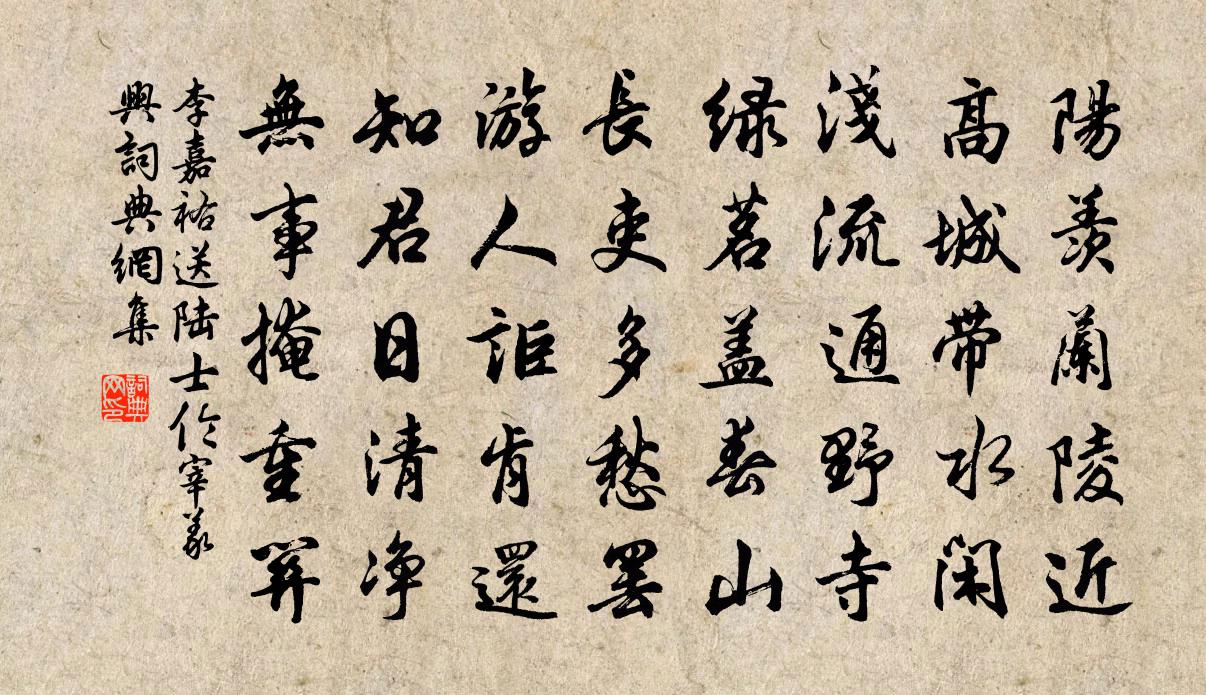 陽羨蘭陵近
高城帶水閑
淺流通野寺
綠茗蓋春山
長吏多愁罷
游人詎肯還
知君日清淨
無事掩重關
李嘉祐送陸士倫宰義
興詞典網集
詞典网印